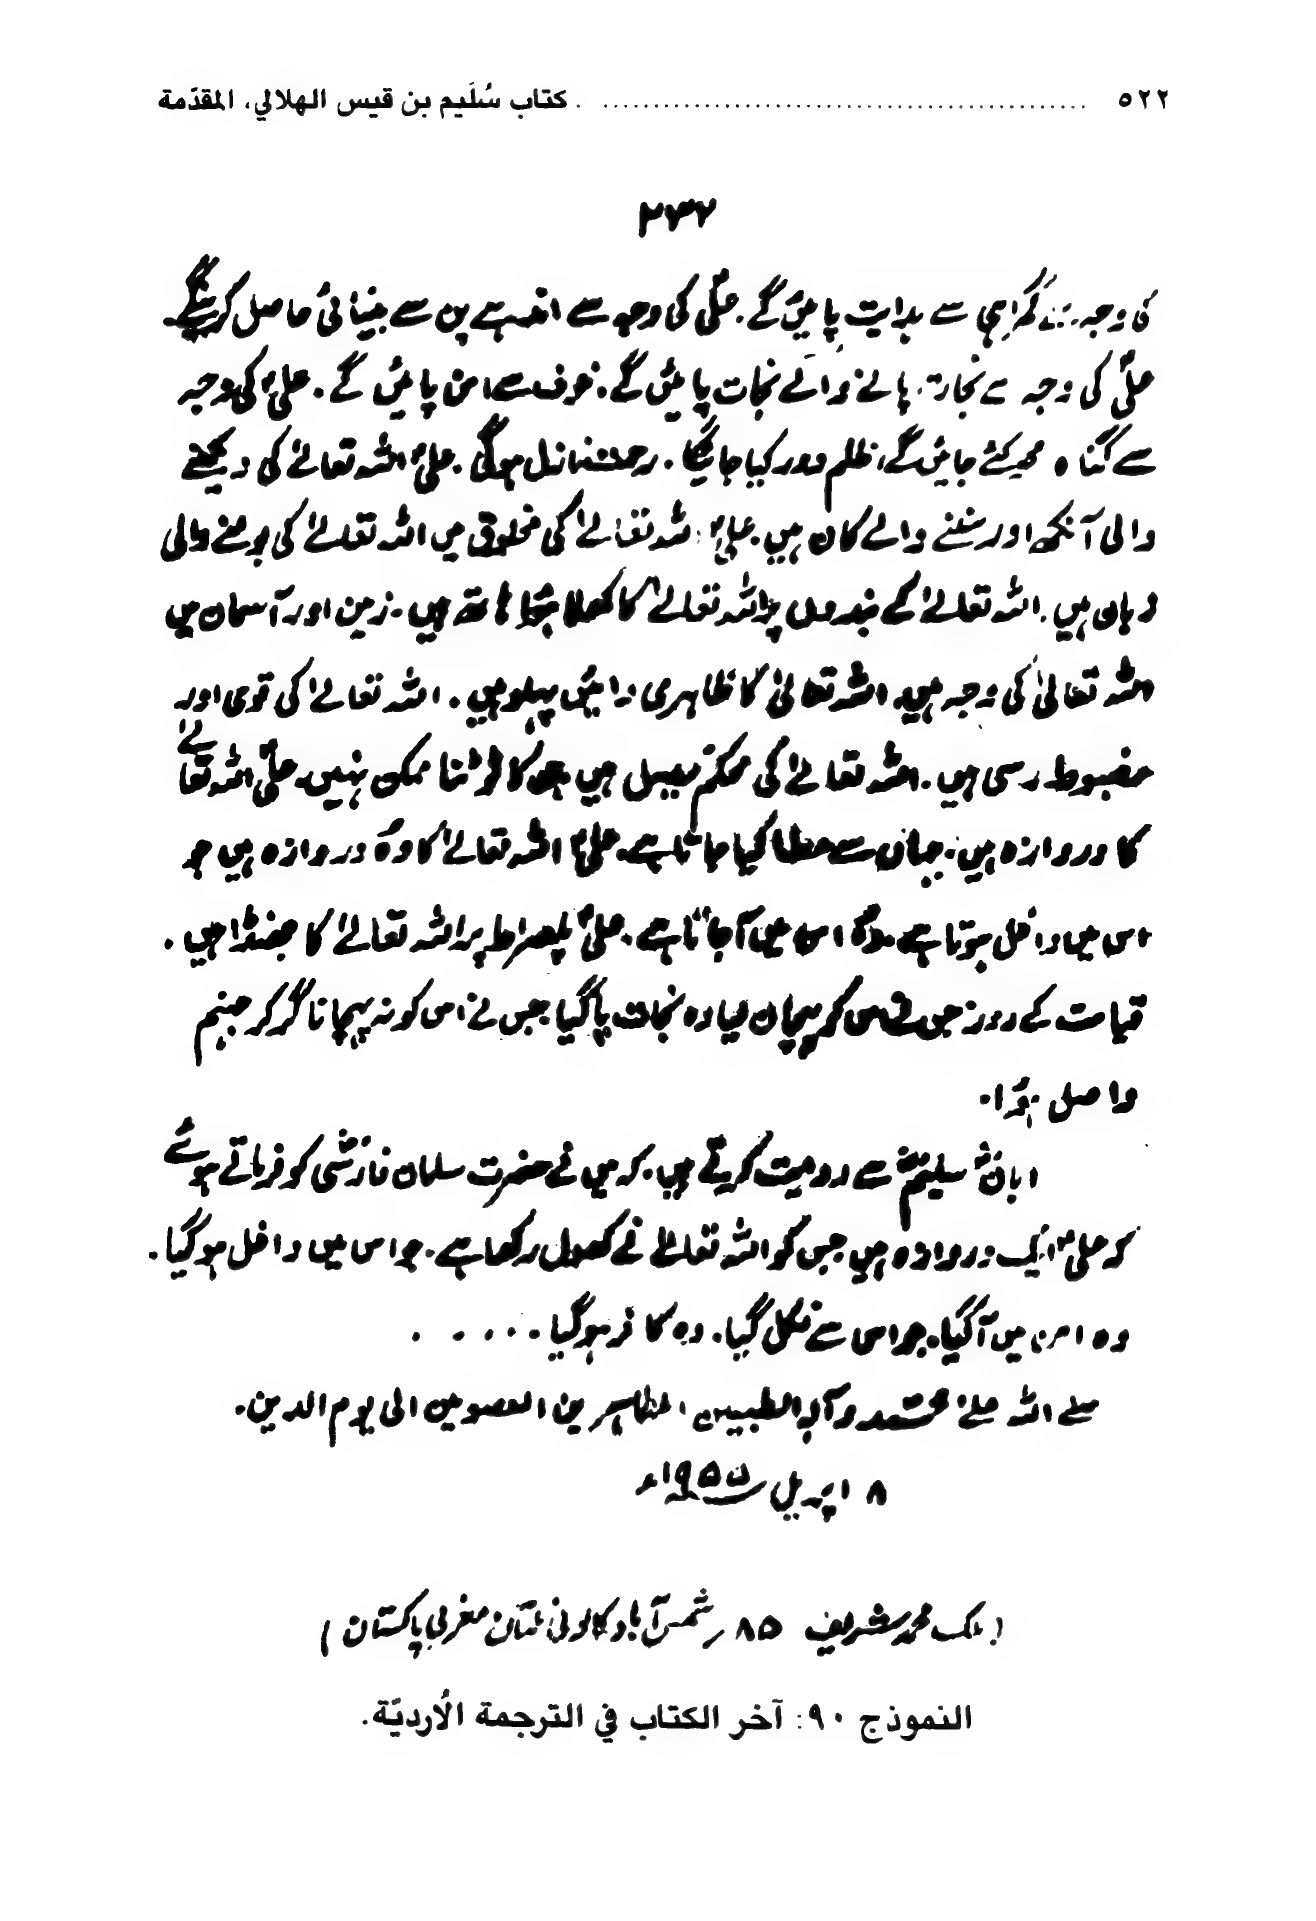 ٥٢٢ ........................................ . كتاب سُلَيم بن قيس الهلالي، المقدّمة
۲۳۶
کی وجہ سے گمراہی سے ہدایت پائیں گے۔ علیؑ کی وجہ سے اندھے پن سے بینائی حاصل کرینگے۔
علیؑ کی وجہ سے نجات پانے والے نجات پائیں گے۔ خوف سے امن پائیں گے۔ علیؑ کی وجہ
سے گناہ محو کئے جائیں گے، ظلم دور کیا جائیگا۔ رحمت نازل ہوگی۔ علیؑ اللہ تعالےٰ کی دیکھنے
والی آنکھ اور سننے والے کان ہیں۔ علیؑ اللہ تعالےٰ کی مخلوق میں اللہ تعالےٰ کی بولنے والی
زبان ہیں۔ اللہ تعالےٰ کے بندوں پر اللہ تعالےٰ کا کھلا ہوا ہاتھ ہیں۔ زمین اور آسمان میں
اللہ تعالیٰ کی وجہ ہیں۔ اللہ تعالیٰ کا ظاہری دائیں پہلو ہیں۔ اللہ تعالےٰ کی قوی اور
مضبوط رسی ہیں۔ اللہ تعالےٰ کی محکم سبیل ہیں جس کا ٹوٹنا ممکن نہیں۔ علیؑ اللہ تعالےٰ
کا دروازہ ہیں۔ جہاں سے عطا کیا جاتا ہے۔ علیؑ اللہ تعالےٰ کا وہ دروازہ ہیں جو
اس میں داخل ہوتا ہے۔ وہ امن میں آجاتا ہے۔ علیؑ پلصراط پر اللہ تعالےٰ کا جھنڈا ہیں۔
قیامت کے روز جس نے اس کو پہچان لیا وہ نجات پا گیا جس نے اس کو نہ پہچانا گر کر جہنم
واصل ہوا۔
ابانؓ سلیمؓ سے روایت کرتے ہیں۔ کہ میں نے حضرت سلمان فارسیؓ کو فرماتے ہوئے
کہ علیؑ ایک دروازہ ہیں جس کو اللہ تعالےٰ نے کھول رکھا ہے۔ جو اس میں داخل ہو گیا۔
وہ امن میں آ گیا۔ جو اس سے نکل گیا۔ وہ کافر ہو گیا۔ . . . . .
صلے اللہ علےٰ محمد و آلہ الطیبین الطاہرین المعصومین الی یوم الدین۔
۸ اپریل ۱۹۵۵ء
(ملک محمد شریف ۸۵ / شمس آباد کالونی ملتان مغربی پاکستان)
النموذج ٩٠: آخر الكتاب في الترجمة الاُرديّة.